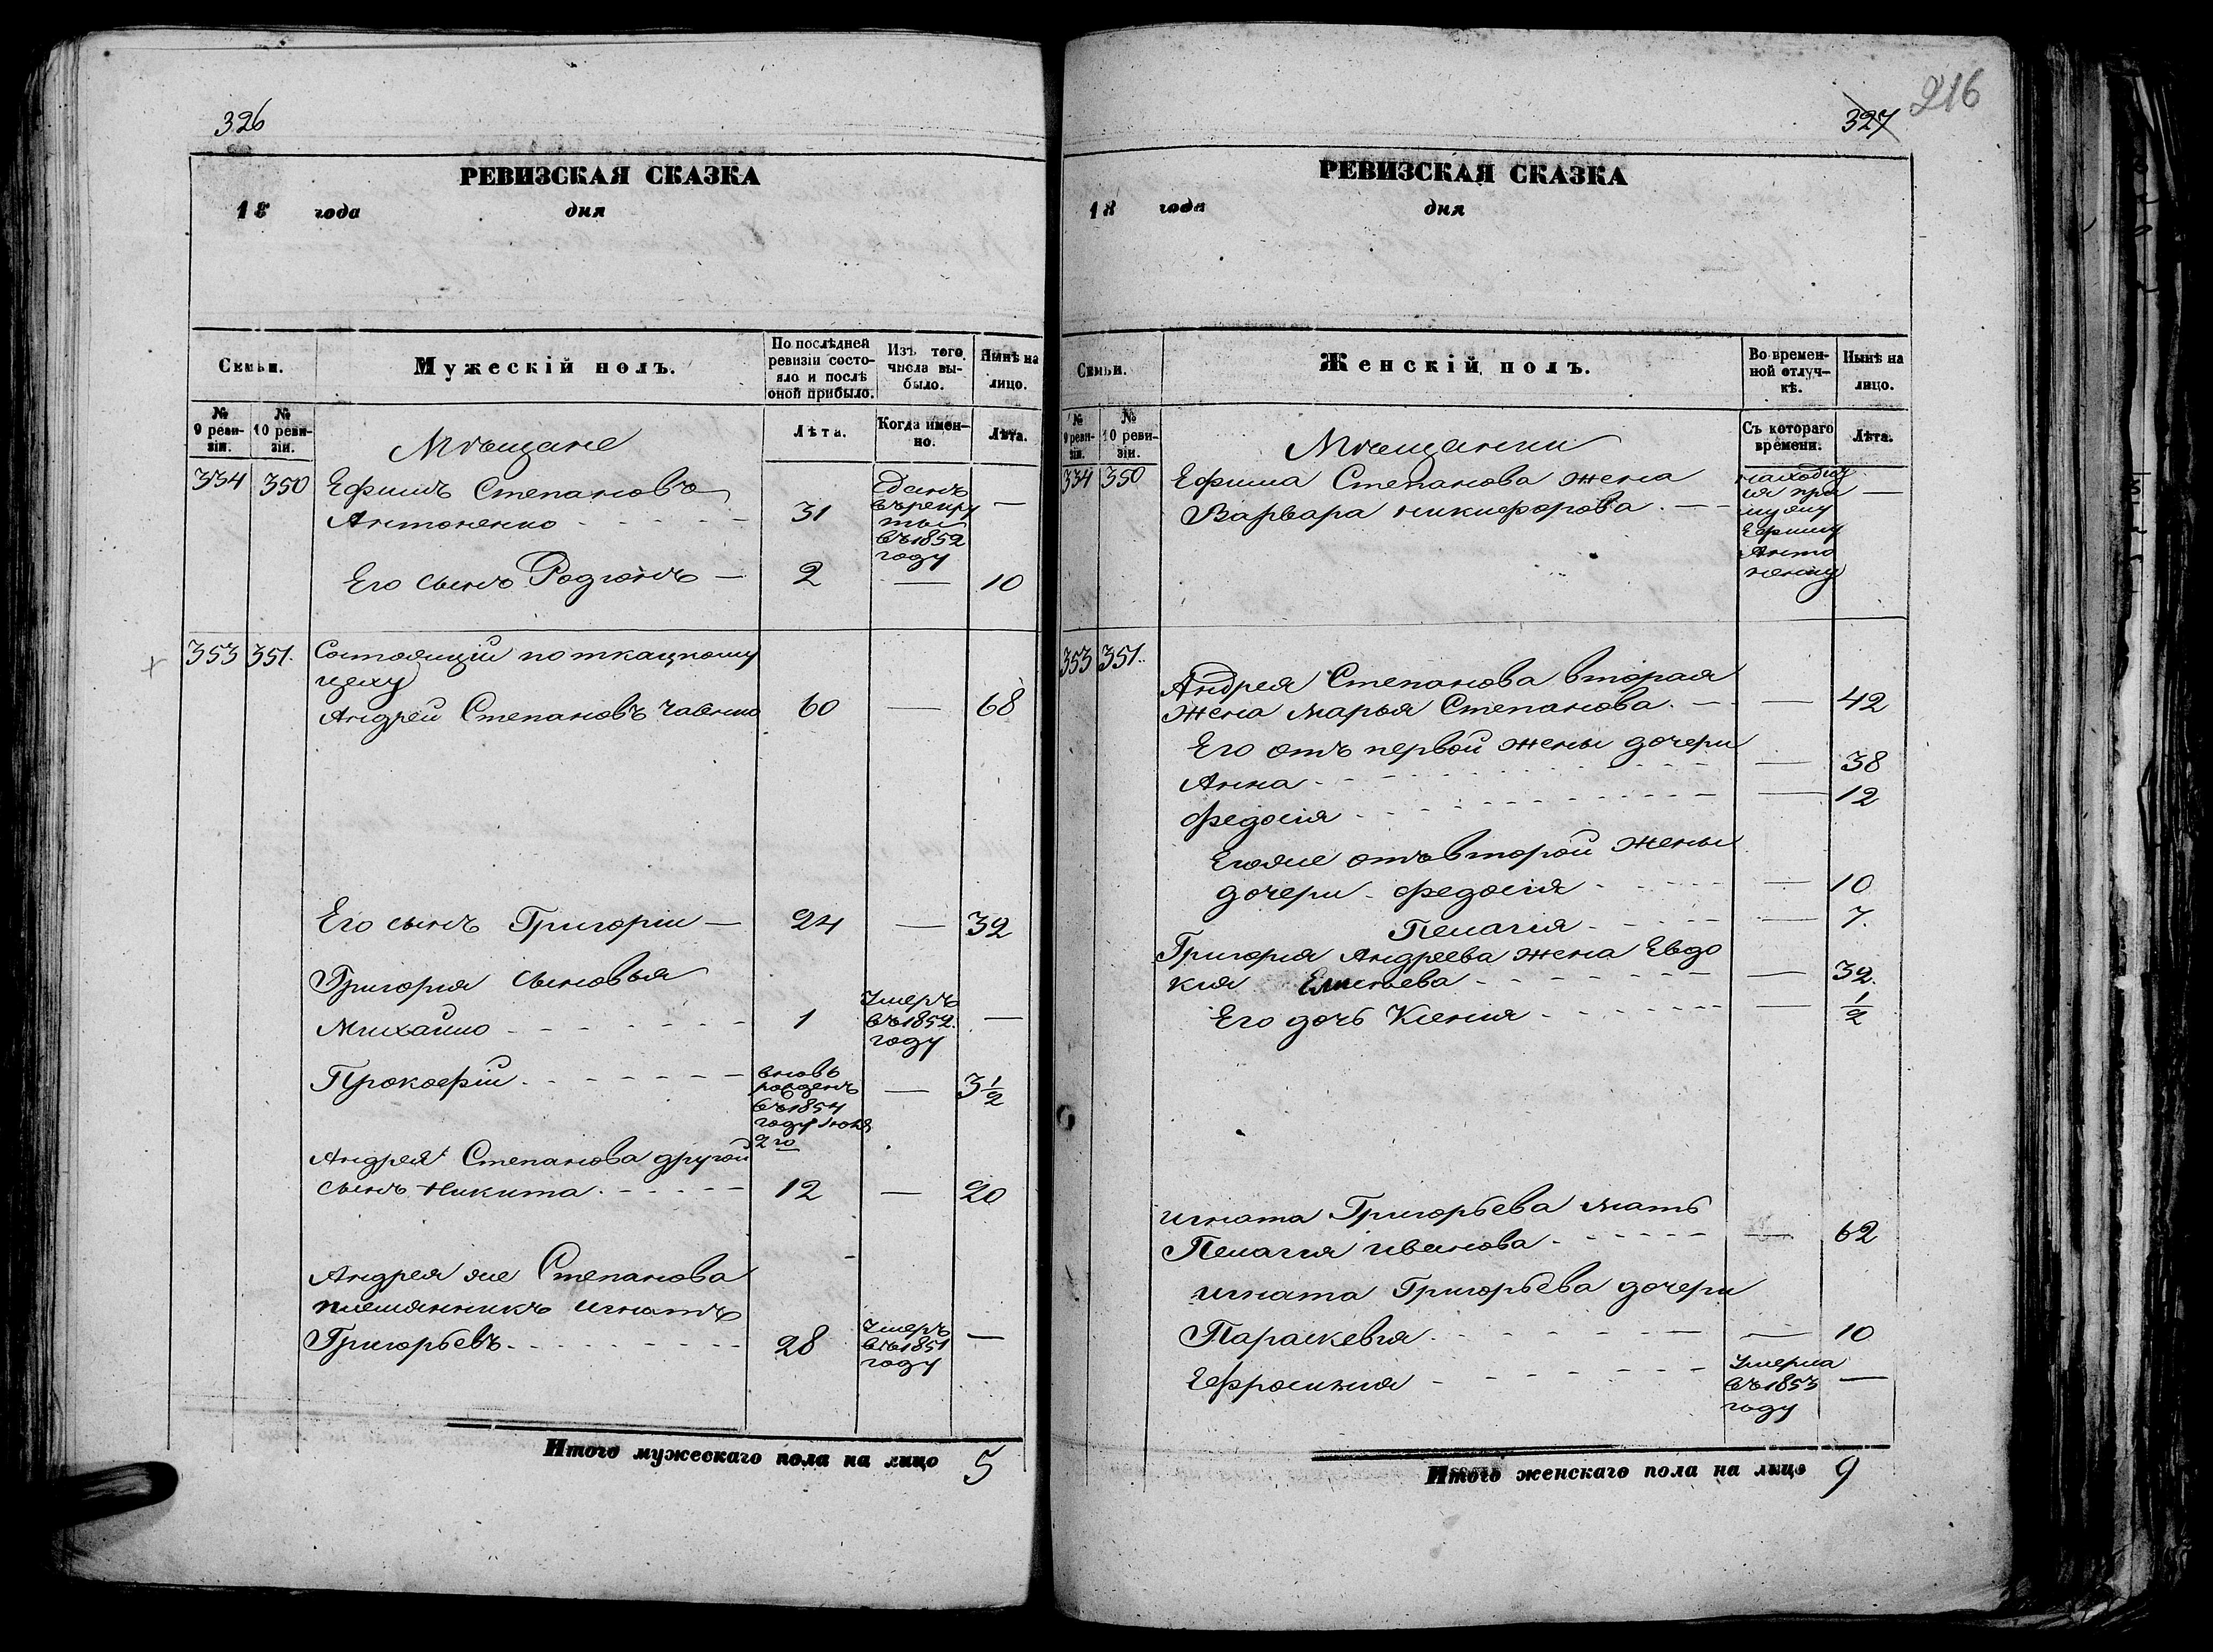 326
РЕВИЗСКАЯ СКАЗКА
18 года дня
Семьи.
Мужескій полъ.
По послѣдней
ревизіи состо-
яло и послѣ
оной прибыло.
Изъ того
числа вы-
было.
Нынѣ на
лицо.
№
9 реви-
зіи.
№
10 реви-
зіи.
Лѣта.
Когда имен-
но.
Лѣта.
Мѣщане
334 350 Ефимъ Степановъ
Антоненко 31 —
Сданъ
въ рекру
ты
въ 1852
году
Его сынъ Родіонъ — 2 — 10
353 351. Состоящій по ткацкому
цеху
Андрей Степановъ 60 — 68
Его сынъ Григорій — 24 — 32
Григорія сыновья
Михайло 1 —
Умеръ
въ 1852.
году
Прокофій — 3 1/2
вновь
рожденъ
въ 1854
году Іюня
2го
Андрея Степанова другой
сынъ Никита. 12 — 20
Андрея же Степанова
племянникъ Игнатъ
Григорьевъ. 28 —
Умеръ
въ 1851
году
Итого мужескаго пола на лицо 5
216
327
РЕВИЗСКАЯ СКАЗКА
18 года дня
Семьи.
Женскій полъ.
Во времен-
ной отлуч-
кѣ.
Нынѣ на
лицо.
№
9 реви-
зіи.
№
10 реви-
зіи.
Съ котораго
времени.
Лѣта.
Мѣщанки
334 350 Ефима Степанова жена
Варвара Никифорова. —
находит
ся при
мужу
Ефиму
Анто
ненку
353 351.
Андрея Степанова вторая
жена Марья Степанова. — 42
Его отъ первой жены дочери
Анна — 38
Федосія — 12
Его же отъ второй жены
дочери Федосія — 10
Пелагія — 7.
Григорія Андреева жена Евдо
кія — 32.
Его дочь Ксенія — 1/2
Игната Григорьева мать
Пелагія Иванова — 62
Игната Григорьева дочери
Параскевія — 10
Ефросинія —
Умерла
въ 1853
году
Итого женскаго пола на лицо 9